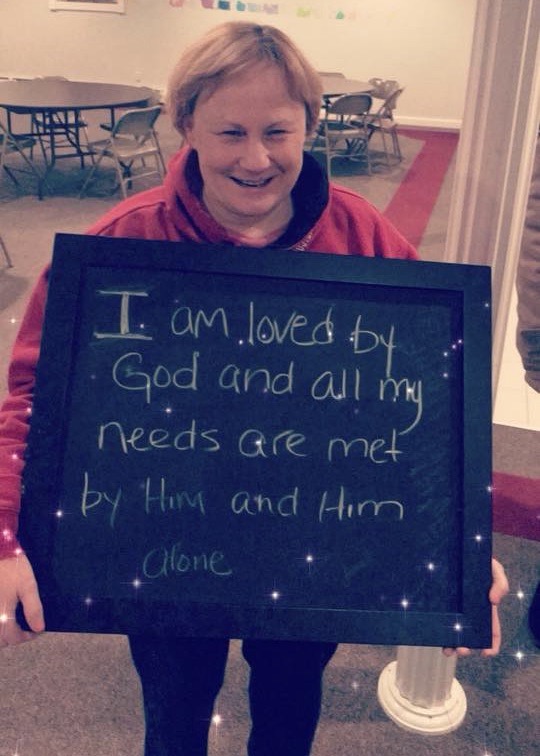 I am loved by
God and all my
needs are met
by Him and Him
alone